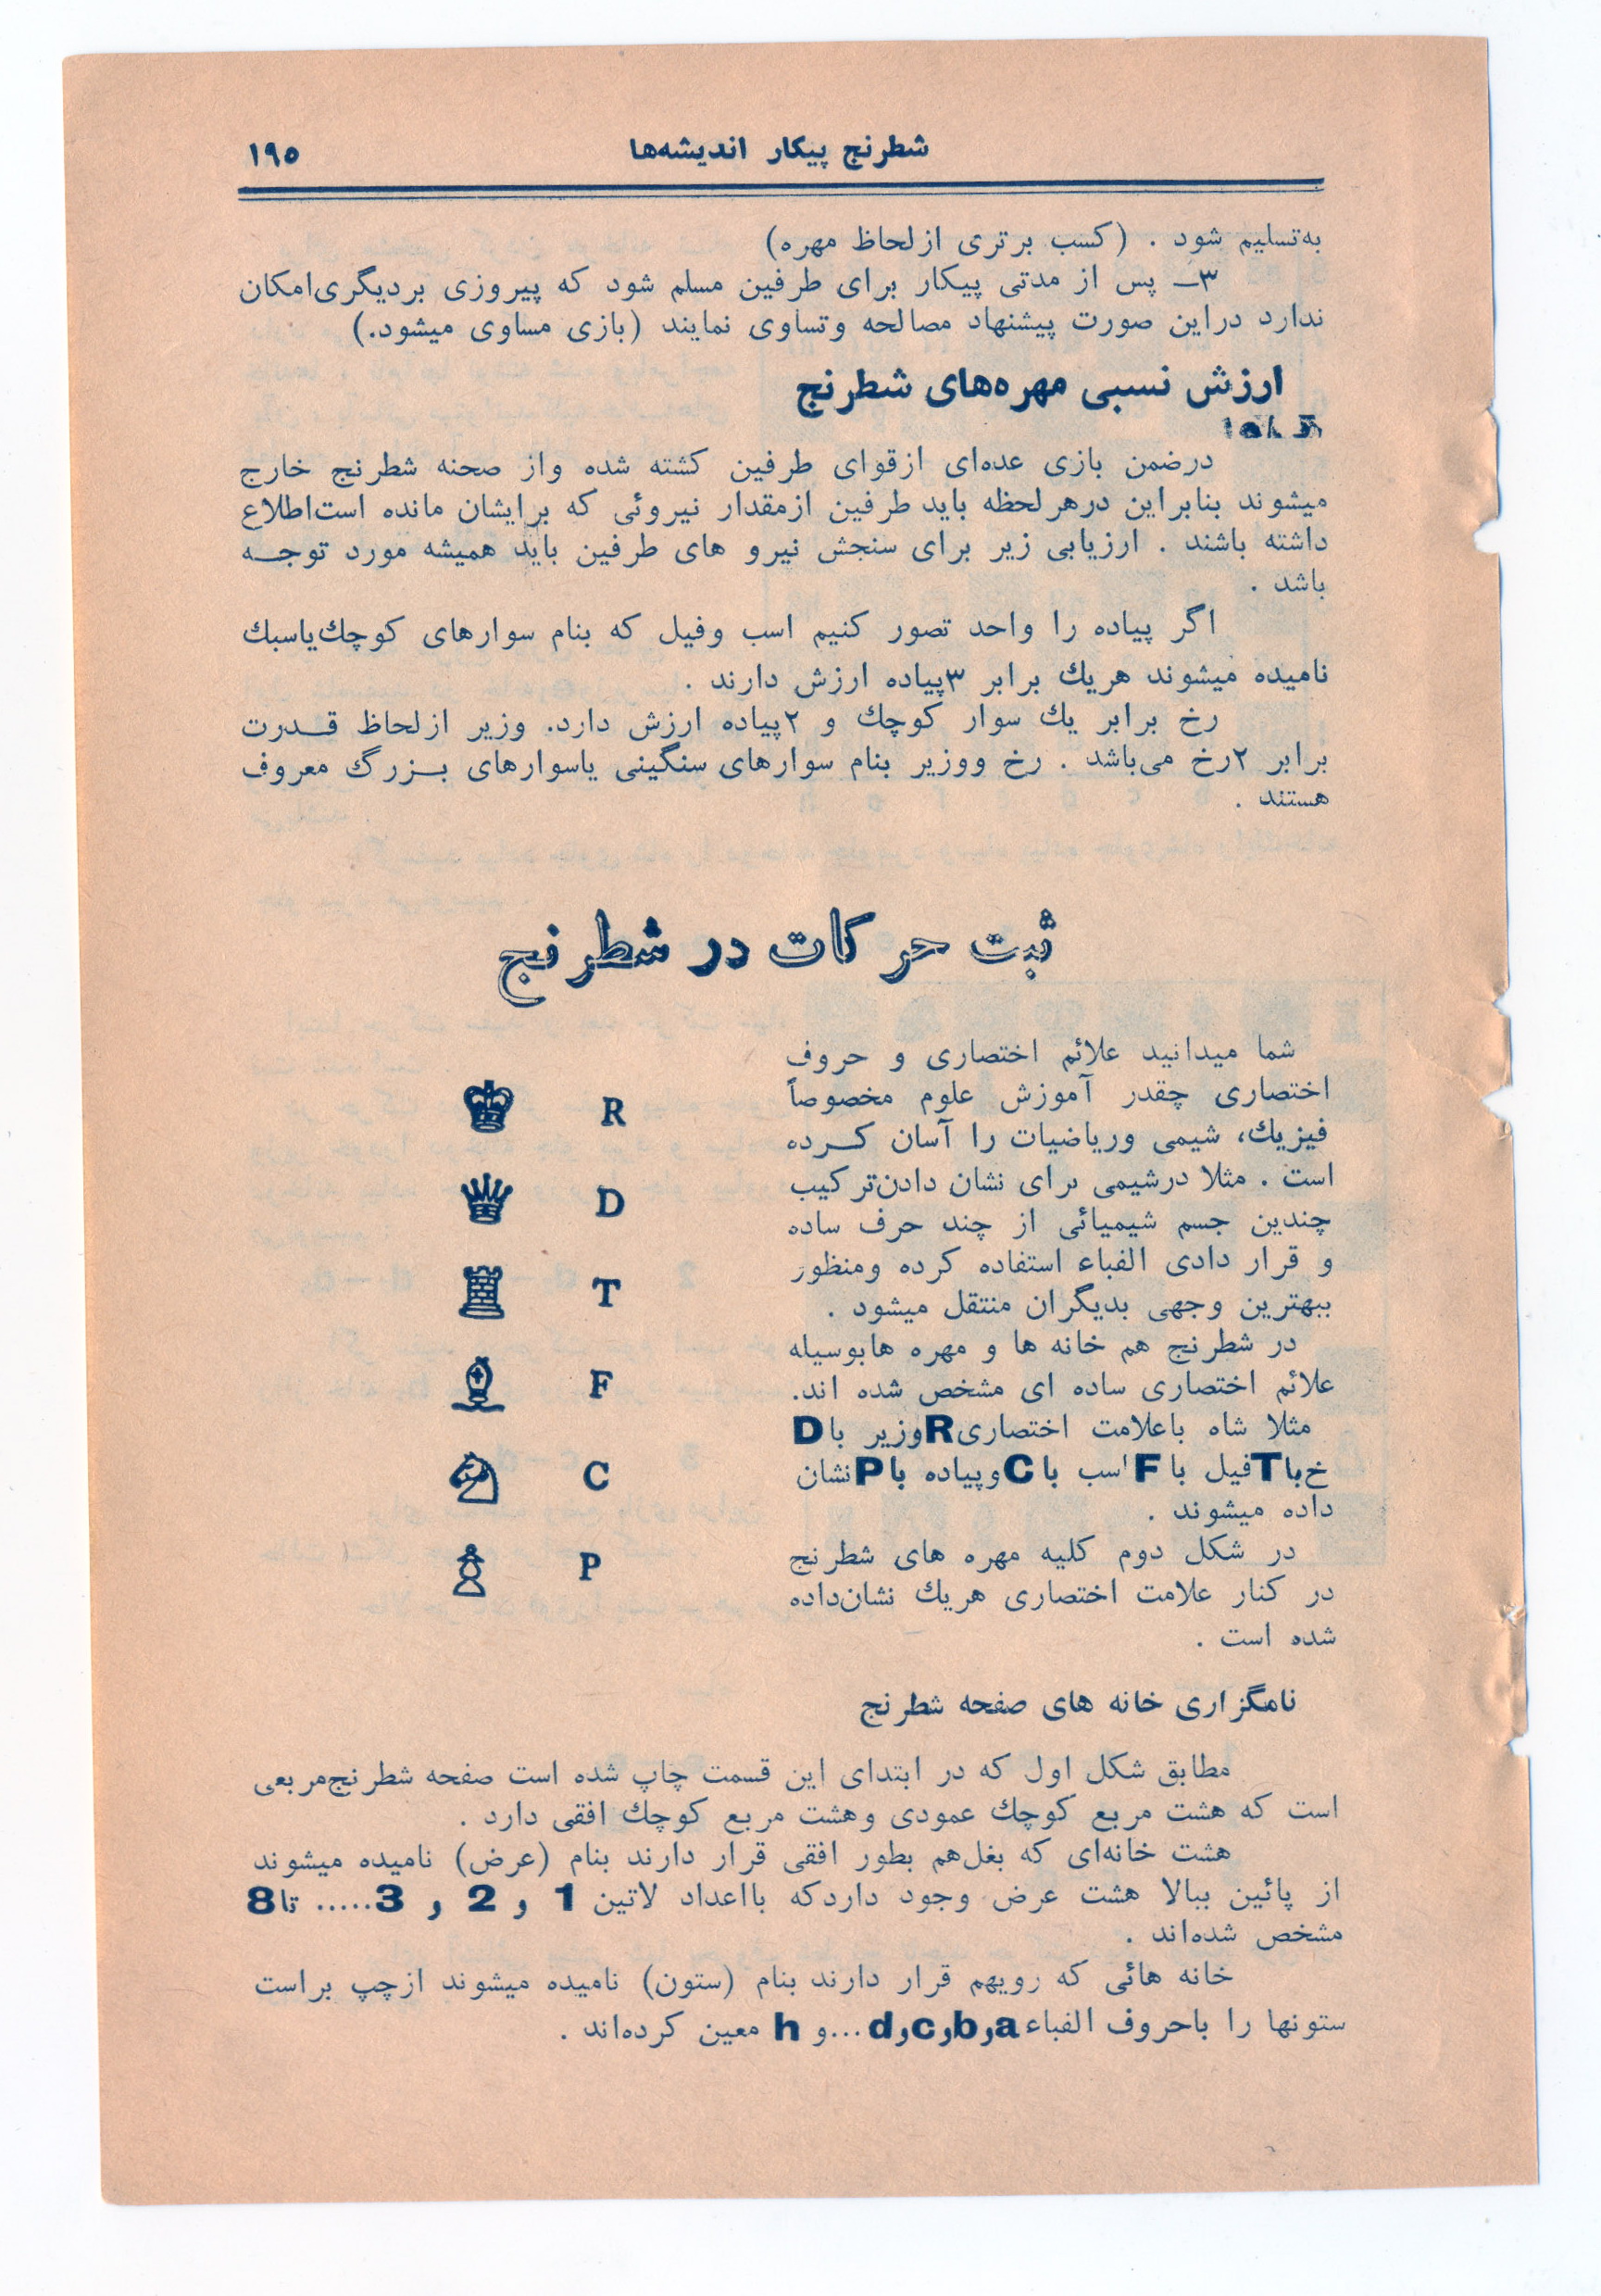 شطرنج پیکار اندیشه‌ها ۱۹۵
به‌تسلیم شود . (کسب برتری ازلحاظ مهره)
۳ــ پس از مدتی پیکار برای طرفین مسلم شود که پیروزی بردیگری‌امکان
ندارد دراین صورت پیشنهاد مصالحه وتساوی نمایند (بازی مساوی میشود.)
ارزش نسبی مهره‌های شطرنج
درضمن بازی عده‌ای ازقوای طرفین کشته شده واز صحنه شطرنج خارج
میشوند بنابراین درهرلحظه باید طرفین ازمقدار نیروئی که برایشان مانده است‌اطلاع
داشته باشند . ارزیابی زیر برای سنجش نیرو های طرفین باید همیشه مورد توجــه
باشد .
اگر پیاده را واحد تصور کنیم اسب وفیل که بنام سوارهای کوچك‌یاسبك
نامیده میشوند هریك برابر ۳پیاده ارزش دارند .
رخ برابر یك سوار کوچك و ۲پیاده ارزش دارد. وزیر ازلحاظ قــدرت
برابر ۲رخ می‌باشد . رخ ووزیر بنام سوارهای سنگینی یاسوارهای بــزرگ معروف
هستند .
ثبت حرکات در شطرنج
شما میدانید علائم اختصاری و حروف
اختصاری چقدر آموزش علوم مخصوصاً
فیزیك، شیمی وریاضیات را آسان کــرده
است . مثلا درشیمی برای نشان دادن‌ترکیب
چندین جسم شیمیائی از چند حرف ساده
و قرار دادی الفباء استفاده کرده ومنظور
ببهترین وجهی بدیگران منتقل میشود .
در شطرنج هم خانه ها و مهره هابوسیله
علائم اختصاری ساده ای مشخص شده اند.
مثلا شاه باعلامت اختصاریRوزیر باD
خ‌باTفیل باFاسب باCوپیاده باPنشان
داده میشوند .
در شکل دوم کلیه مهره های شطرنج
در کنار علامت اختصاری هریك نشان‌داده
شده است .
R
D
T
F
C
P
نامگزاری خانه های صفحه شطرنج
مطابق شکل اول که در ابتدای این قسمت چاپ شده است صفحه شطرنج‌مربعی
است که هشت مربع کوچك عمودی وهشت مربع کوچك افقی دارد .
هشت خانه‌ای که بغل‌هم بطور افقی قرار دارند بنام (عرض) نامیده میشوند
از پائین ببالا هشت عرض وجود داردکه بااعداد لاتین 1 و 2 و 3..... تا8
مشخص شده‌اند .
خانه هائی که رویهم قرار دارند بنام (ستون) نامیده میشوند ازچپ براست
ستونها را باحروف الفباءaوbوcوd...و h معین کرده‌اند .